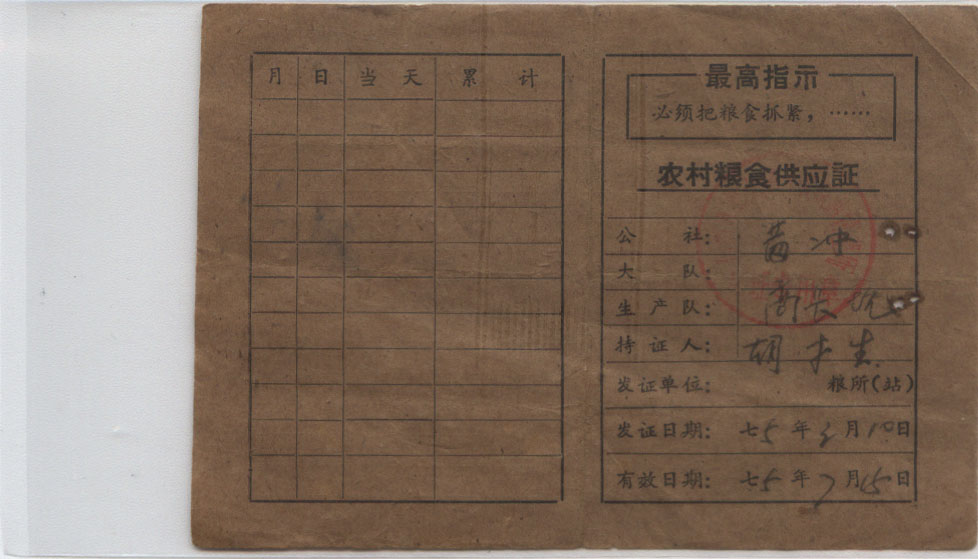 月 日 当天 累计
最高指示
必须把粮食抓紧，……
农村粮食供应証
公社：黄冲
大队：
生产队：
持证人：胡
发证单位：粮所(站)
发证日期：七5年3月10日
有效日期：七5年7月15日